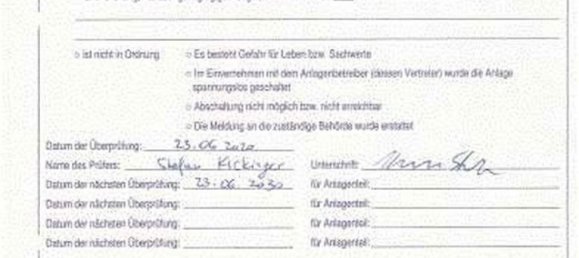 ○ ist nicht in Ordnung ○ Es besteht Gefahr für Leben bzw. Sachwerte
○ Im Einvernehmen mit dem Anlagenbetreiber (dessen Vertreter) wurde die Anlage
spannungslos geschaltet
○ Abschaltung nicht möglich bzw. nicht erreichbar
○ Die Meldung an die zuständige Behörde wurde erstattet
Datum der Überprüfung: 23.06.2020
Name des Prüfers: Stefan Kickinger Unterschrift:
Datum der nächsten Überprüfung: 23.06.2030 für Anlagenteil:
Datum der nächsten Überprüfung: für Anlagenteil:
Datum der nächsten Überprüfung: für Anlagenteil:
Datum der nächsten Überprüfung: für Anlagenteil: